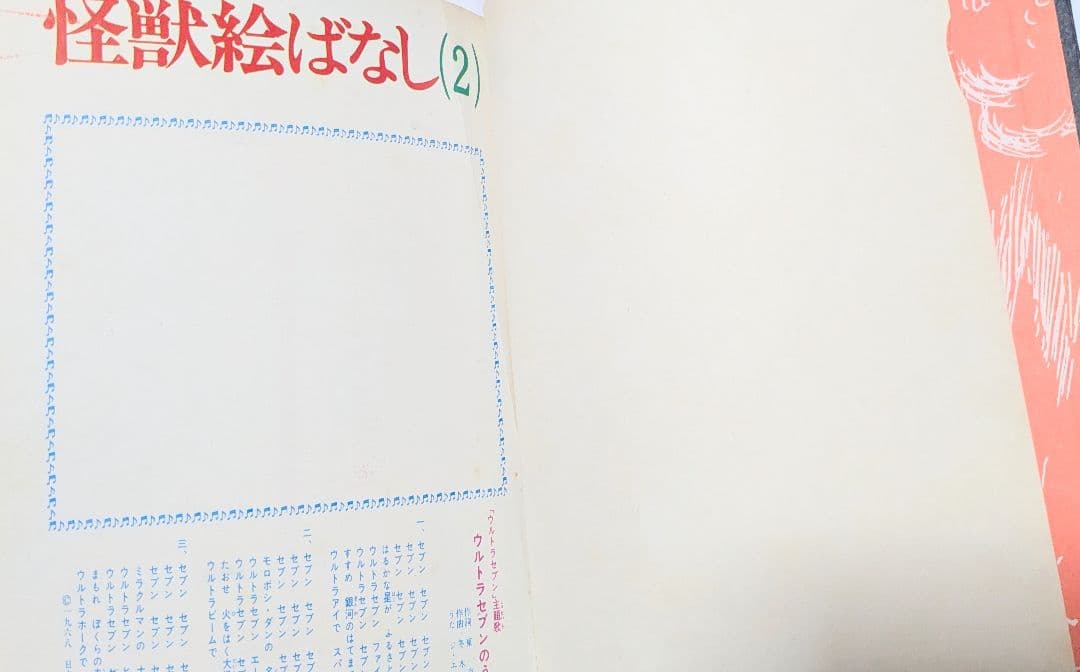 怪獣絵ばなし(2)
「ウルトラセブン」主題歌
ウルトラセブンのう
作詞 東
作曲 冬 木
うた ジ・エ
一、セブン セブン セ
セブン セブン セ
セブン セブン セブン
はるかな星が ふるさと
ウルトラセブン ファイ
ウルトラセブン セブン
すすめ 銀河のはてま
ウルトラアイで スパ
二、セブン セブン
セブン セブン
セブン セブン
モロボシ・ダンの
ウルトラセブン エー
ウルトラセブン セブ
たおせ 火をはく大
ウルトラビームで
三、セブン セブン
セブン セブン
セブン セブン
ミラクルマンの
ウルトラセブン
ウルトラセブン
まもれ ぼくらの
ウルトラホークで
©一九六八